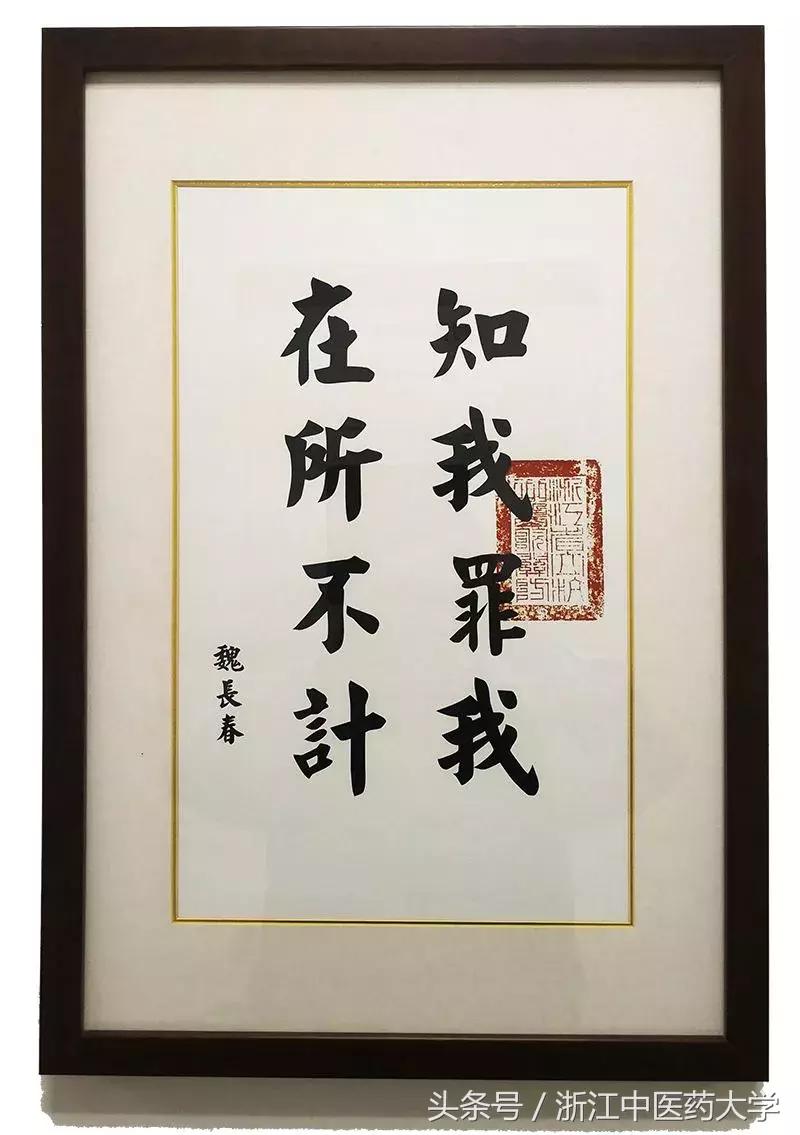 知我罪我
在所不計
魏長春
头条号/浙江中医药大学